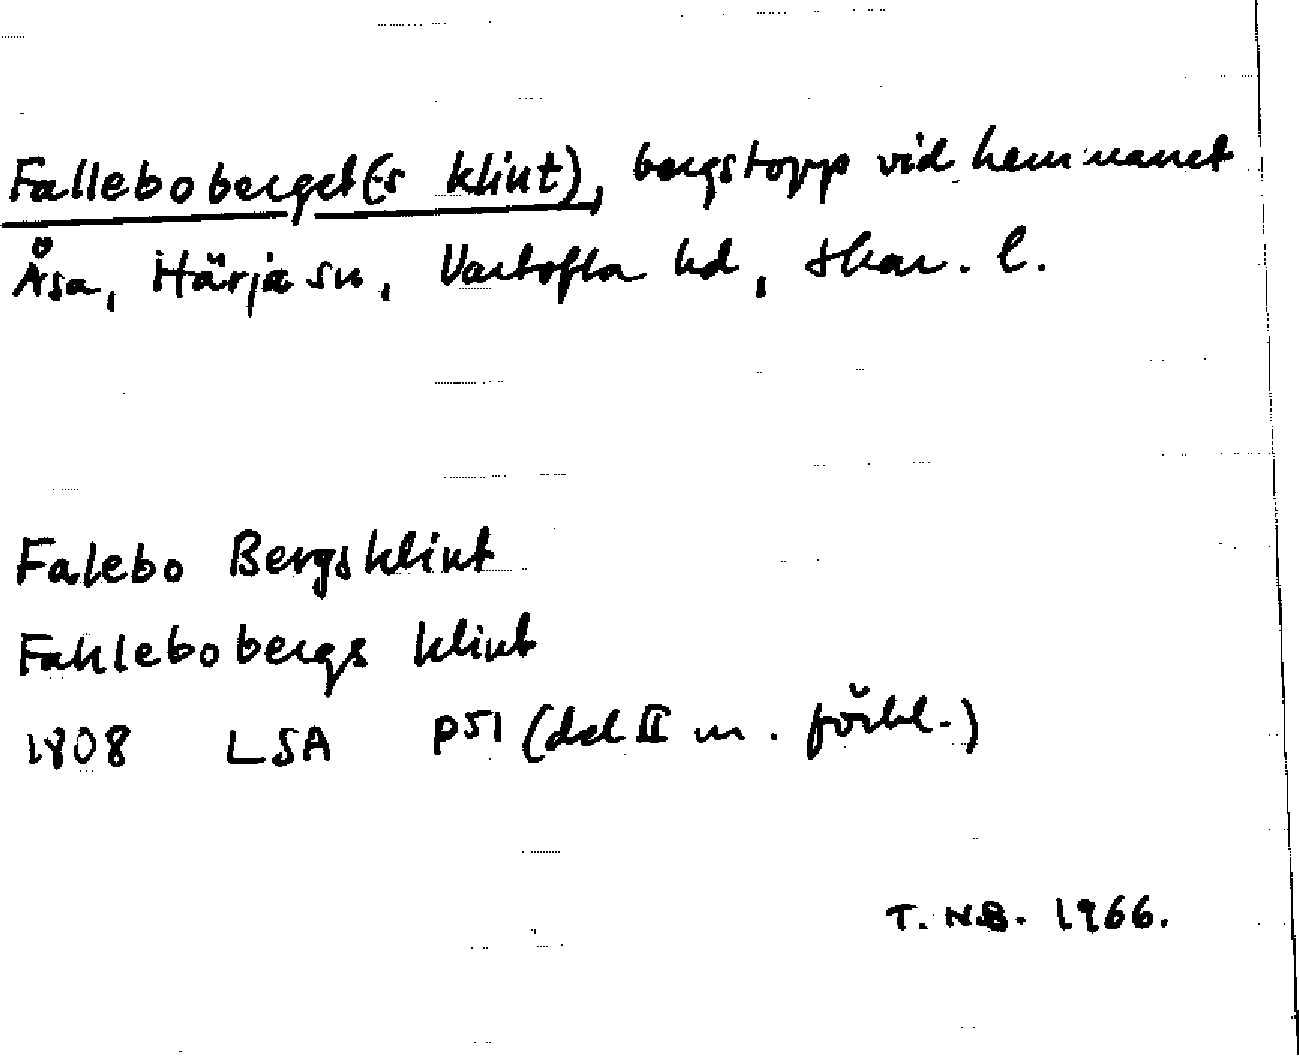 Falleboberget(s klint), bergstopp vid hemmanet
Åsa, Härja sn, Vartofta hd, Skar. l.
Falebo Bergsklint
Fahlebobergs klint
1808 LSA P51 (del II m. förkl.)
T. N.B. 1966.